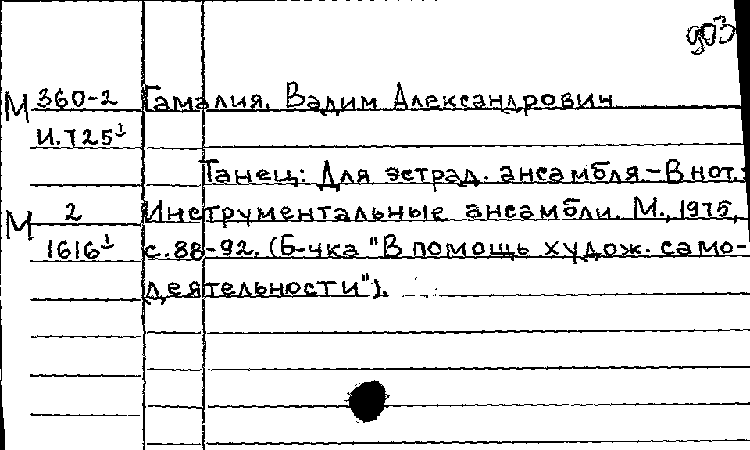 903
М 360-2 Гамалия, Вадим Александрович
И.725¹
Танец: Для эстрад. ансамбля.-В нот.:
М 2 Инструментальные ансамбли. М., 1975,
1616¹ с.88-92. (Б-чка "В помощь худож. само-
деятельности").